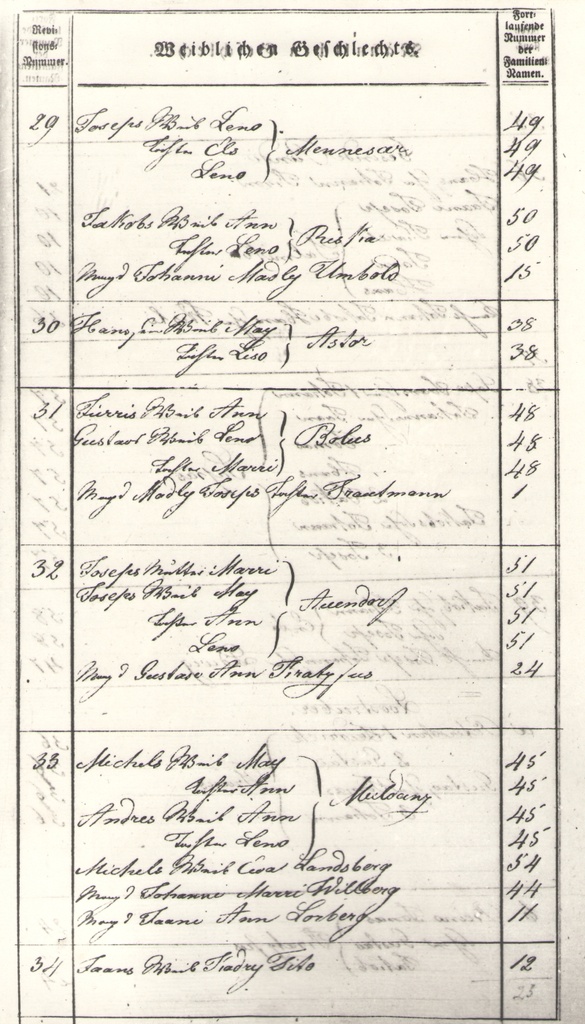 Revi-
sions-
Nummer.
Weiblichen Geschlechts.
Fort-
laufende
Nummer
der
Familien
Namen.
29 Joseps Weib Leno 49
Tochter Els Mennesar 49
Leno 49
Jakobs Weib Ann 50
Tochter Leno 50
Magd Johanni Madly Umbold 15
30 Hans Weib May 38
Tochter Liso Astor 38
31 Jürris Weib Ann 48
Gustavs Weib Leno Bolus 48
Tochter Marri 48
Magd Madly Joseps Tochter Trautmann 1
32 Joseps Mutter Marri 51
Joseps Weib May 51
Tochter Ann Auendorf 51
Leno 51
Magd Gustavs Ann 24
33 Michels Weib May 45
Tochter Ann 45
Andres Weib Ann 45
Tochter Leno 45
Michels Weib Ewa Landsberg 54
Magd Johanni Marri Willberg 44
Magd Jaani Ann Lorberg 11
34 Jaans Weib Kadry Tito 12
23